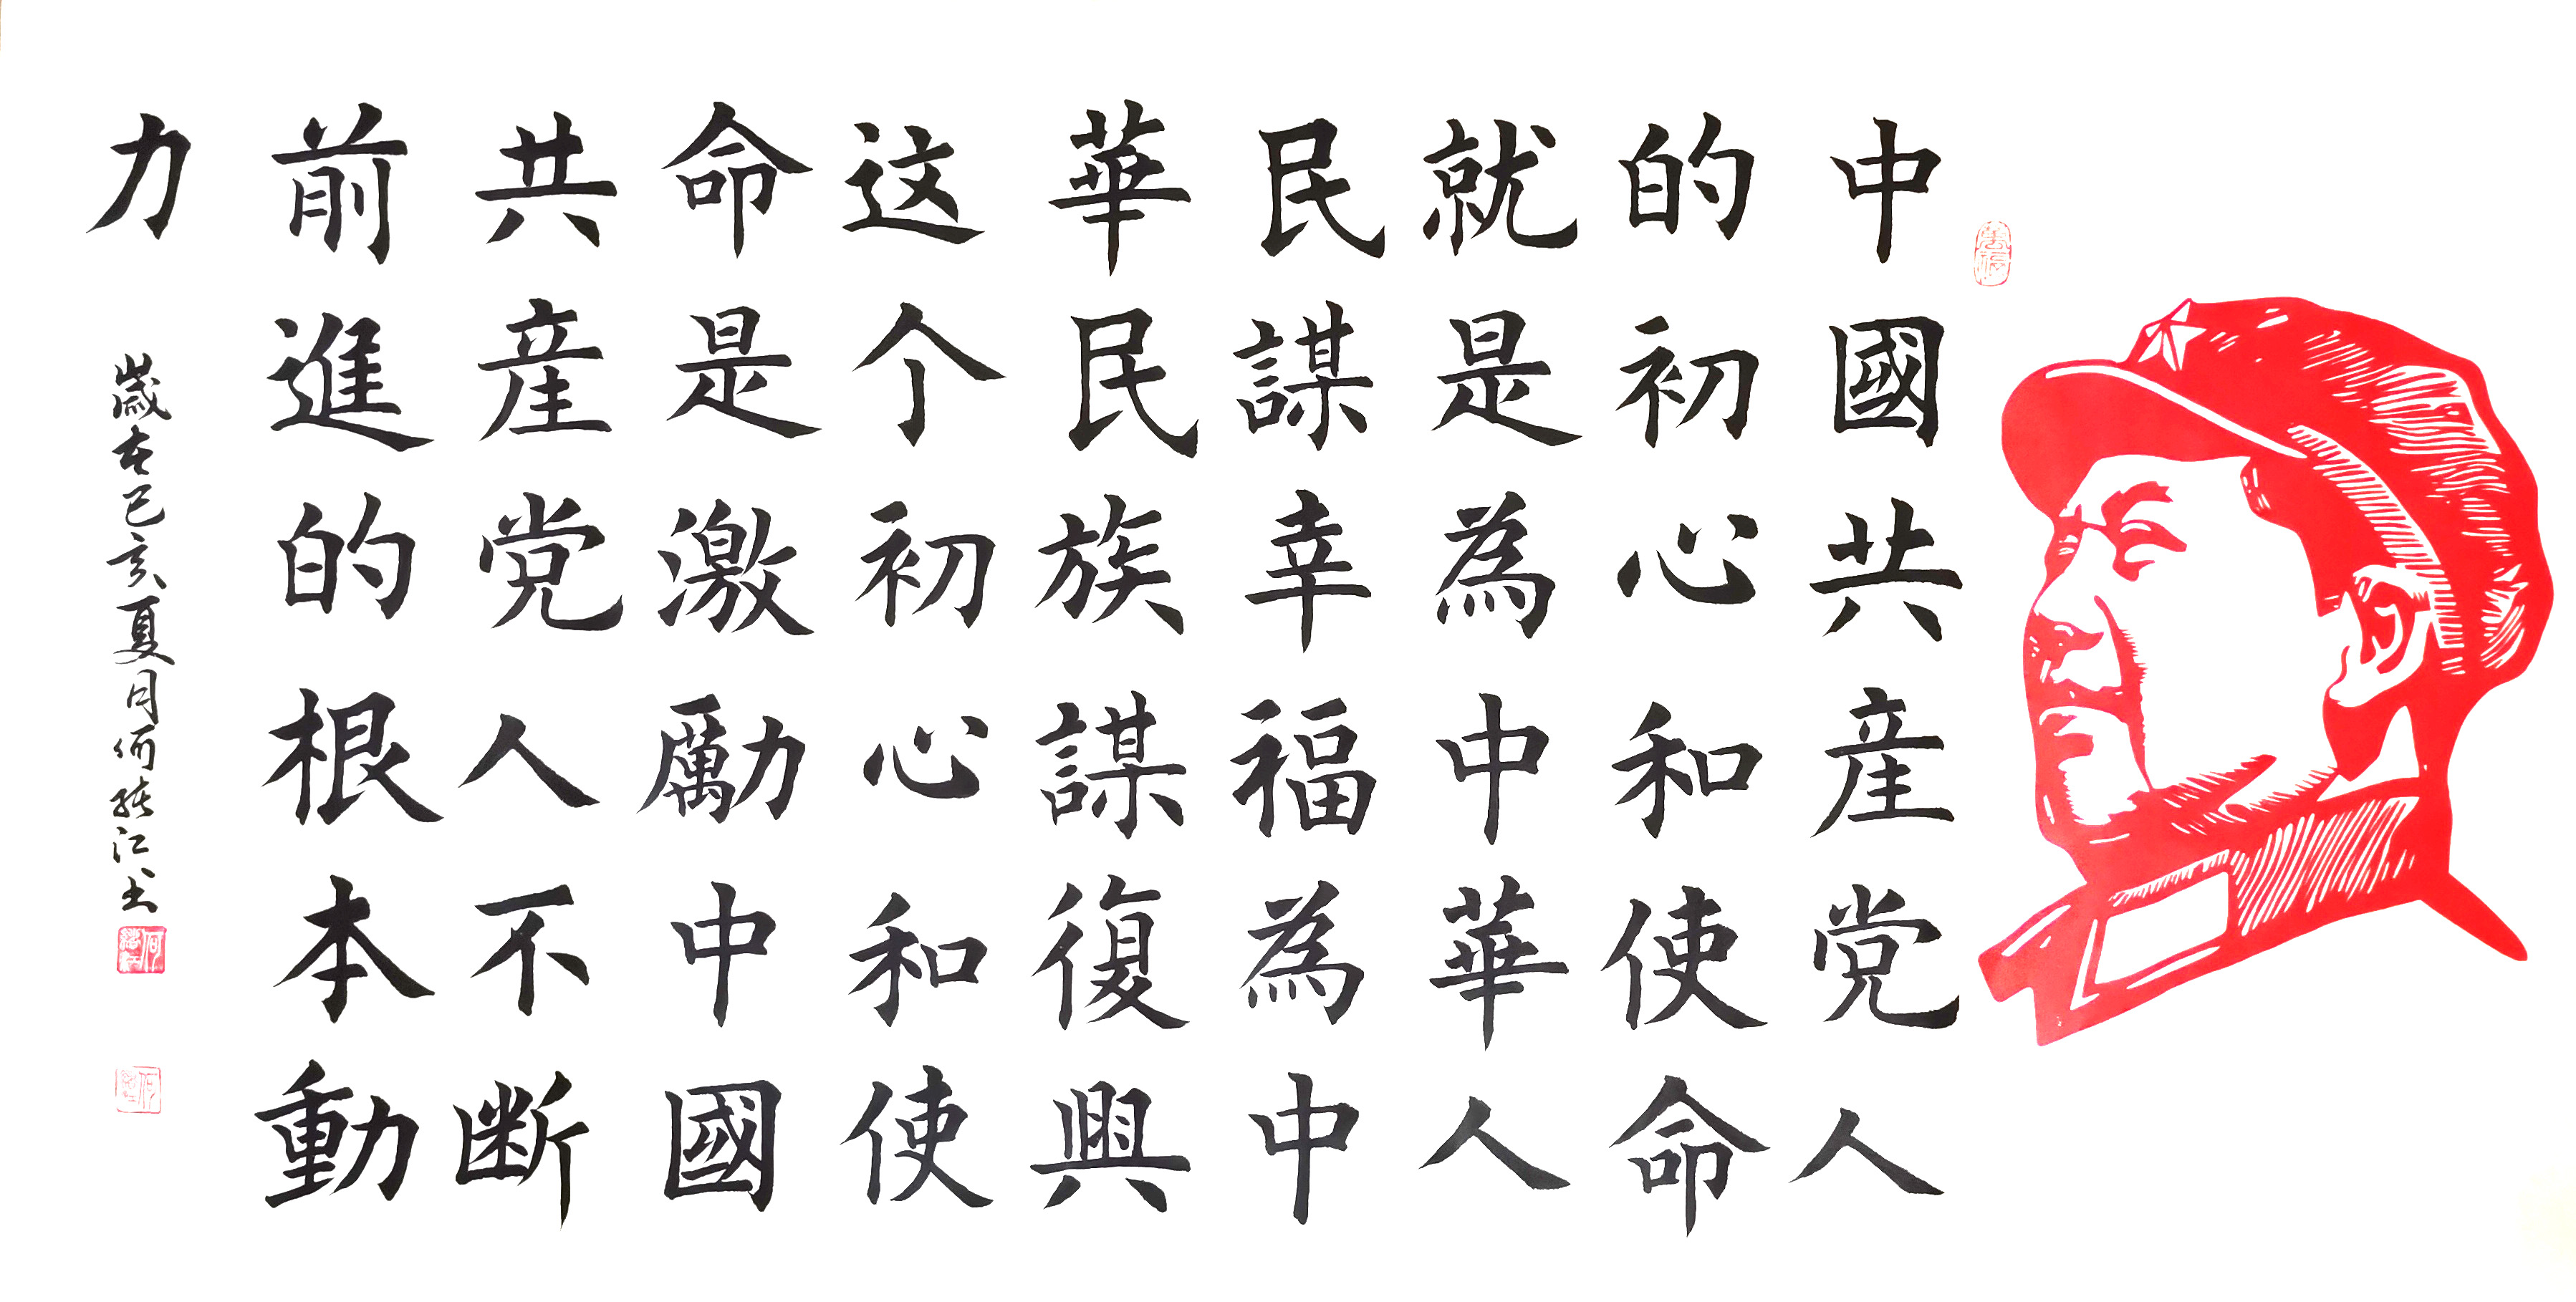 中國共産党人
的初心和使命
就是為中華人
民謀幸福為中
華民族謀復興
这个初心和使
命是激勵中國
共産党人不断
前進的根本動
力
歲在己亥夏月何緒江书